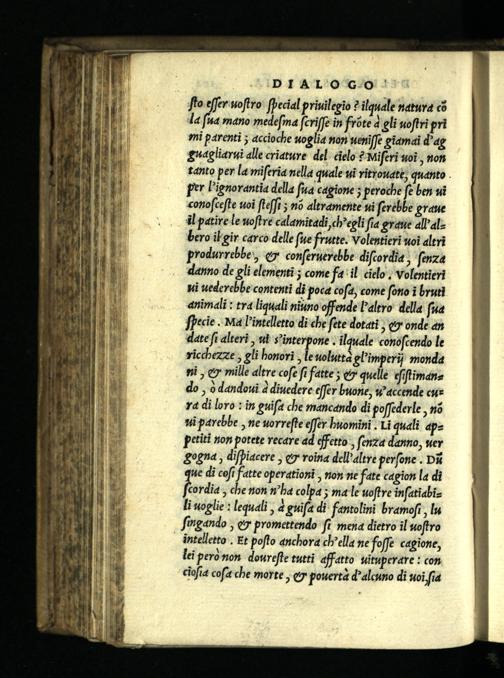 DIALOGO
sto esser uostro spetial priuilegio ? ilquale natura cõ
la sua mano medesma scrisse in frõte à gli uostri pri
mi parenti ; accioche uoglia non uenisse giamai d'ag
guagliarui alle criature del cielo ? Miseri uoi, non
tanto per la miseria nella quale ui ritrouate, quanto
per l'ignorantia della sua cagione ; peroche se ben ui
conosceste uoi stessi ; nõ altramente ui serebbe graue
il patire le uostre calamitadi, ch'egli sia graue all'al=
bero il gir carco delle sue frutte. Volentieri uoi altri
produrrebbe, & conseruerebbe discordia, senza
danno de gli elementi ; come fa il cielo. Volentieri
ui uederebbe contenti di poca cosa, come sono i bruti
animali : tra liquali niuno offende l'altro della sua
specie. Ma l'intelletto di che sete dotati, & onde an
date si alteri, ui s'interpone. ilquale conoscendo le
ricchezze, gli honori, le uoluttà gl'imperij monda
ni, & mille altre cose si fatte ; & quelle esistiman=
do, ò dandoui à diuedere esser buone, u'accende cu=
ra di loro : in guisa che mancando di possederle, nõ
ui parebbe, ne uorreste esser huomini. Li quali ap=
petiti non potete recare ad effetto, senza danno, uer
gogna, dispiacere, & roina dell'altre persone. Dũ
que di cosi fatte operationi, non ne fate cagion la di
scordia, che non n'ha colpa ; ma le uostre insatiabi=
li uoglie : lequali, à guisa di fantolini bramosi, lu
singando, & promettendo si mena dietro il uostro
intelletto. Et posto anchora ch'ella ne fosse cagione,
lei però non doureste tutti affatto uituperare : con
ciosia cosa che morte, & pouertà d'alcuno di uoi, sia